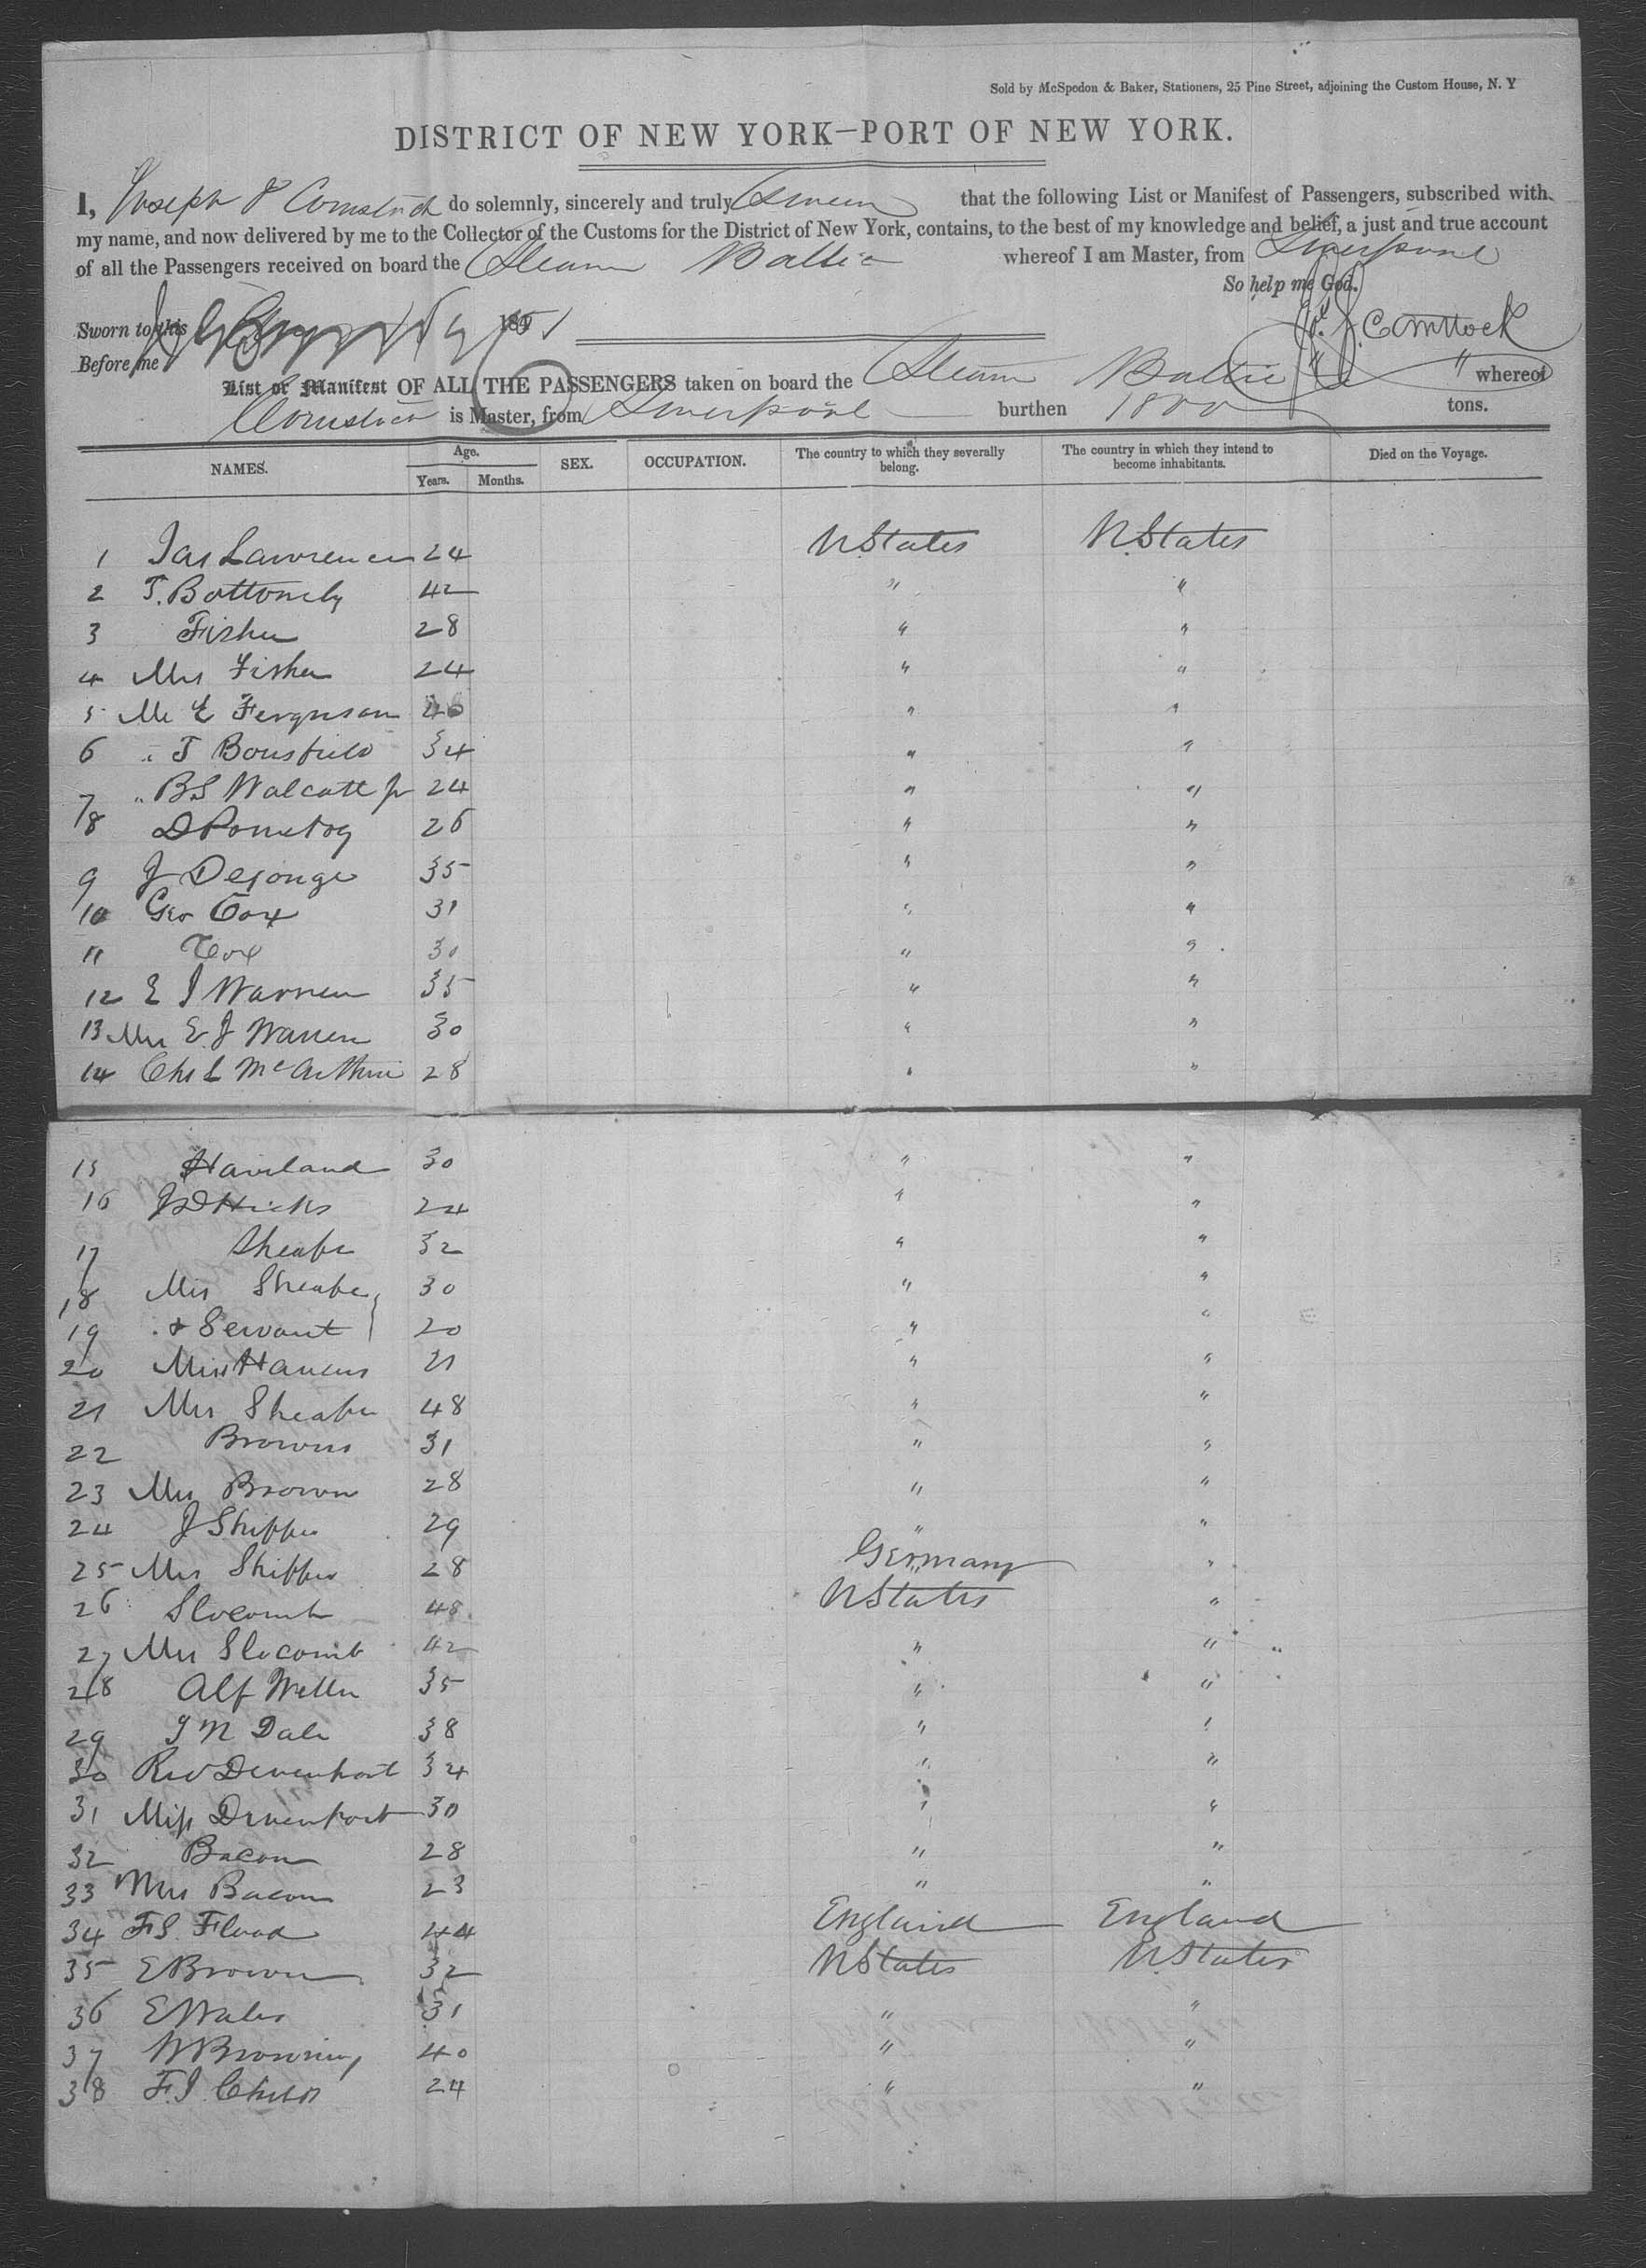 Sold by McSpedon & Baker, Stationers, 25 Pine Street, adjoining the Custom House, N. Y
DISTRICT OF NEW YORK—PORT OF NEW YORK.
I, Joseph J Comstock do solemnly, sincerely and truly Swear that the following List or Manifest of Passengers, subscribed with
my name, and now delivered by me to the Collector of the Customs for the District of New York, contains, to the best of my knowledge and belief, a just and true account
of all the Passengers received on board the Steam Baltic whereof I am Master, from Liverpool
So help me God.
Sworn to this 1851
Jos. J. Comstock
Before me
List or Manifest OF ALL THE PASSENGERS taken on board the Steam Baltic " " whereof
Comstock is Master, from Liverpool burthen 1800 tons.
NAMES. Age. Years. Months. SEX. OCCUPATION. The country to which they severally belong. The country in which they intend to become inhabitants. Died on the Voyage.
1 Jas Lawrence 24 U States U. States
2 T. Bottomly 42 " "
3 Fisher 28 " "
4 Mrs Fisher 24 " "
5 Mr E Ferguson " "
6 " J Bousfield 34 " "
7 " B S Walcott Jr 24 " "
8 D 26 " "
9 J Dejonge 35 " "
10 Geo Cox 31 " "
11 Cox 30 " "
12 E J Warren 35 " "
13 Mrs E. J Warren 30 " "
14 Chs L McArthur 28 " "
15 Haviland 30 " "
16 J D Hicks 24 " "
17 Sheafe 32 " "
18 Mrs Sheafe 30 " "
19 & Servant 20 " "
20 Miss 21 " "
21 Mrs Sheafe 48 " "
22 Browns 31 " "
23 Mrs Brown 28 " "
24 J 29 " "
25 Mrs 28 Germany "
26 Slocomb 48 U States "
27 Mrs Slocomb 42 " "
28 Alf Weller 35 " "
29 T N Dale 38 " "
30 Rev Devenport 34 " "
31 Miss Devenport 30 " "
32 Bacon 28 " "
33 Mrs Bacon 23 " "
34 F S. Flood 44 England England
35 E Brown 32 U States U. States
36 E Wales 31 " "
37 W Browning 40 " "
38 F. J. Childs 24 " "